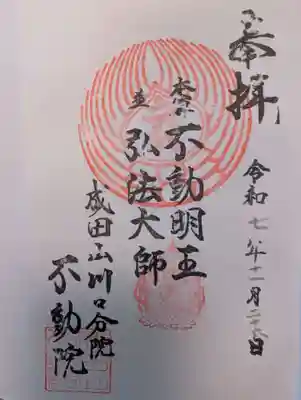 奉拝
令和七年十一月二十六日
本尊 不動明王
並 弘法大師
成田山川口分院
不動院